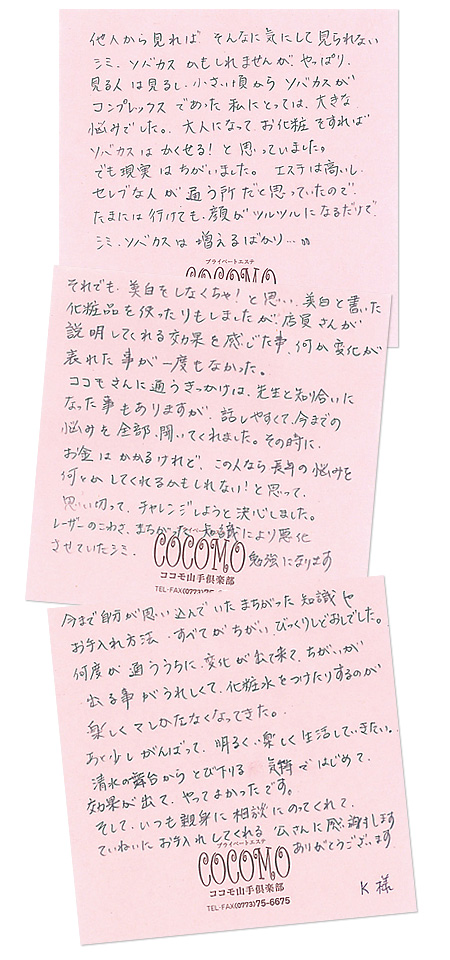 他人から見れば そんなに気にして見られない
シミ、ソバカス かもしれませんが、やっぱり、
見る人は見るし、小さい頃から ソバカスが
コンプレックス であった 私にとっては、大きな
悩みでした。大人になって お化粧 をすれば
ソバカスは かくせる! と 思っていました。
でも現実 は ちがいました。 エステは高いし、
セレブな人 が 通う所 だと思っていたので、
たまには行けても、顔がツルツルになるだけで、
シミ、ソバカスは 増えるばかり…
プライベートエステ
COCOMO
それでも、美白をしなくちゃ! と思い、美白と書いた
化粧品を使ったりもしましたが、店員さんが
説明してくれる効果を感じた事、何か変化が
表れた事が一度もなかった。
ココモさんに通うきっかけは、先生と知り合いに
なった事もありますが、話しやすくて、今までの
悩みを全部、聞いてくれました。その時に、
お金はかかるけれど、この人なら長年の悩みを
何とかしてくれるかもしれない! と思って、
思い切って、チャレンジしようと決心しました。
レーザーのこわさ、まちがった 知識により悪化
させていたシミ、 勉強になります
COCOMO
ココモ山手倶楽部
TEL・FAX(0773)75
今まで自分が思い込んでいたまちがった知識や
お手入れ方法、すべてがちがい、びっくりしどおしでした。
何度か通ううちに、変化が出て来て、ちがいが
出る事がうれしくて、化粧水をつけたりするのが
楽しくてしかたなくなってきた。
あと少しがんばって、明るく、楽しく生活していきたい。
清水の舞台からとび下りる 気持ではじめて、
効果が出て、やってよかったです。
そして、いつも親身に相談にのってくれて、
ていねいにお手入れしてくれる 公さんに感謝します
ありがとうございます
プライベートエステ
COCOMO
ココモ山手倶楽部
TEL・FAX(0773)75-6675
K 様